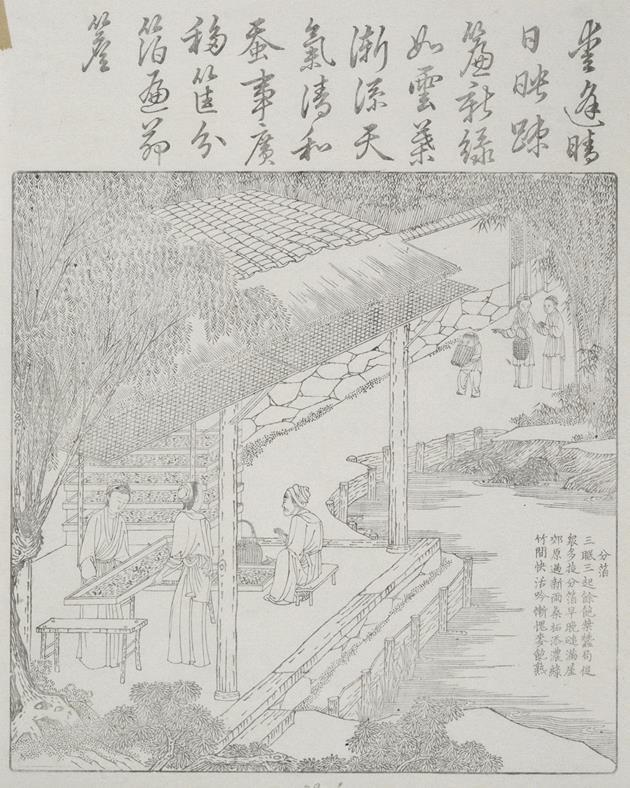 愛逢晴
日映疎
簾新綠
如雲葉
漸添天
氣清和
蚕事廣
移筐分
箔遍茆
簷
分箔
三眠三起餘飽葉蠶局促
衆多旋分箔早晚磓滿屋
郊原過新雨桑柘添濃綠
竹間快活吟慚愧麥飽熟